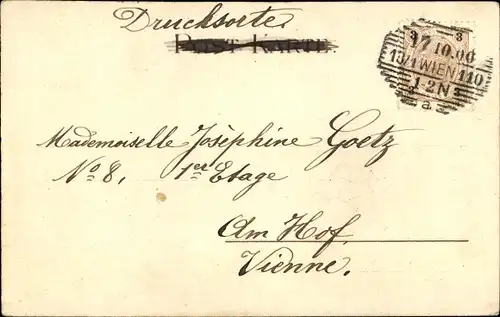 Drucksorte.
POST-KARTE.
3 3
17 10.00
13/1 WIEN 110
1-2N
3 3
a
Mademoiselle Josèphine Goetz
No 8, 1er Etage
Am Hof,
Vienne.